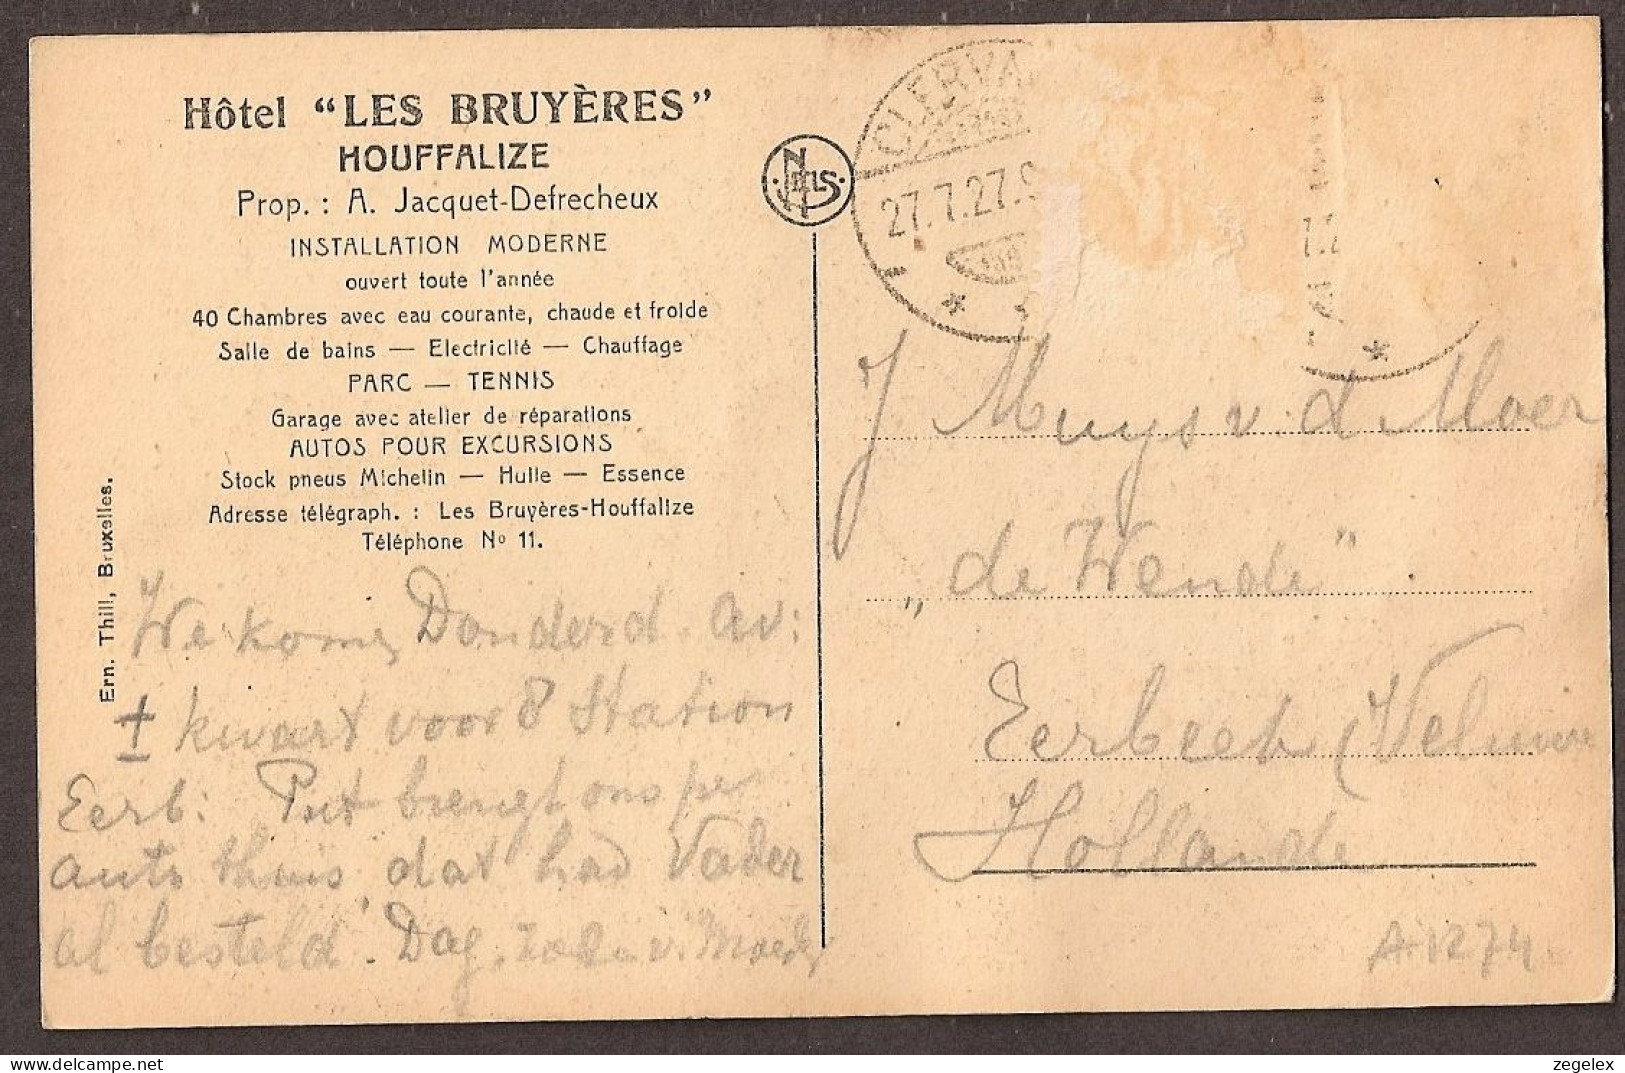 Hôtel “LES BRUYÈRES”
HOUFFALIZE
Prop. : A. Jacquet-Defrecheux
INSTALLATION MODERNE
ouvert toute l'année
40 Chambres avec eau courante, chaude et froide
Salle de bains — Electricité — Chauffage
PARC — TENNIS
Garage avec atelier de réparations
AUTOS POUR EXCURSIONS
Stock pneus Michelin — Huile — Essence
Adresse télégraph. : Les Bruyères-Houffalize
Téléphone Nº 11.
Ern. Thill, Bruxelles.
NELS
CLERVA
27.7.27.9
We komen Donderd. av:
± kwart voor 8 Station
Eerb: Put brengt ons per
auto thuis, dat had Vader
al besteld. Dag, v. Moeder
J Muys v. d Moer
„de Wende”
Eerbeek (Veluwe
Hollande
A.1274.
zegelex